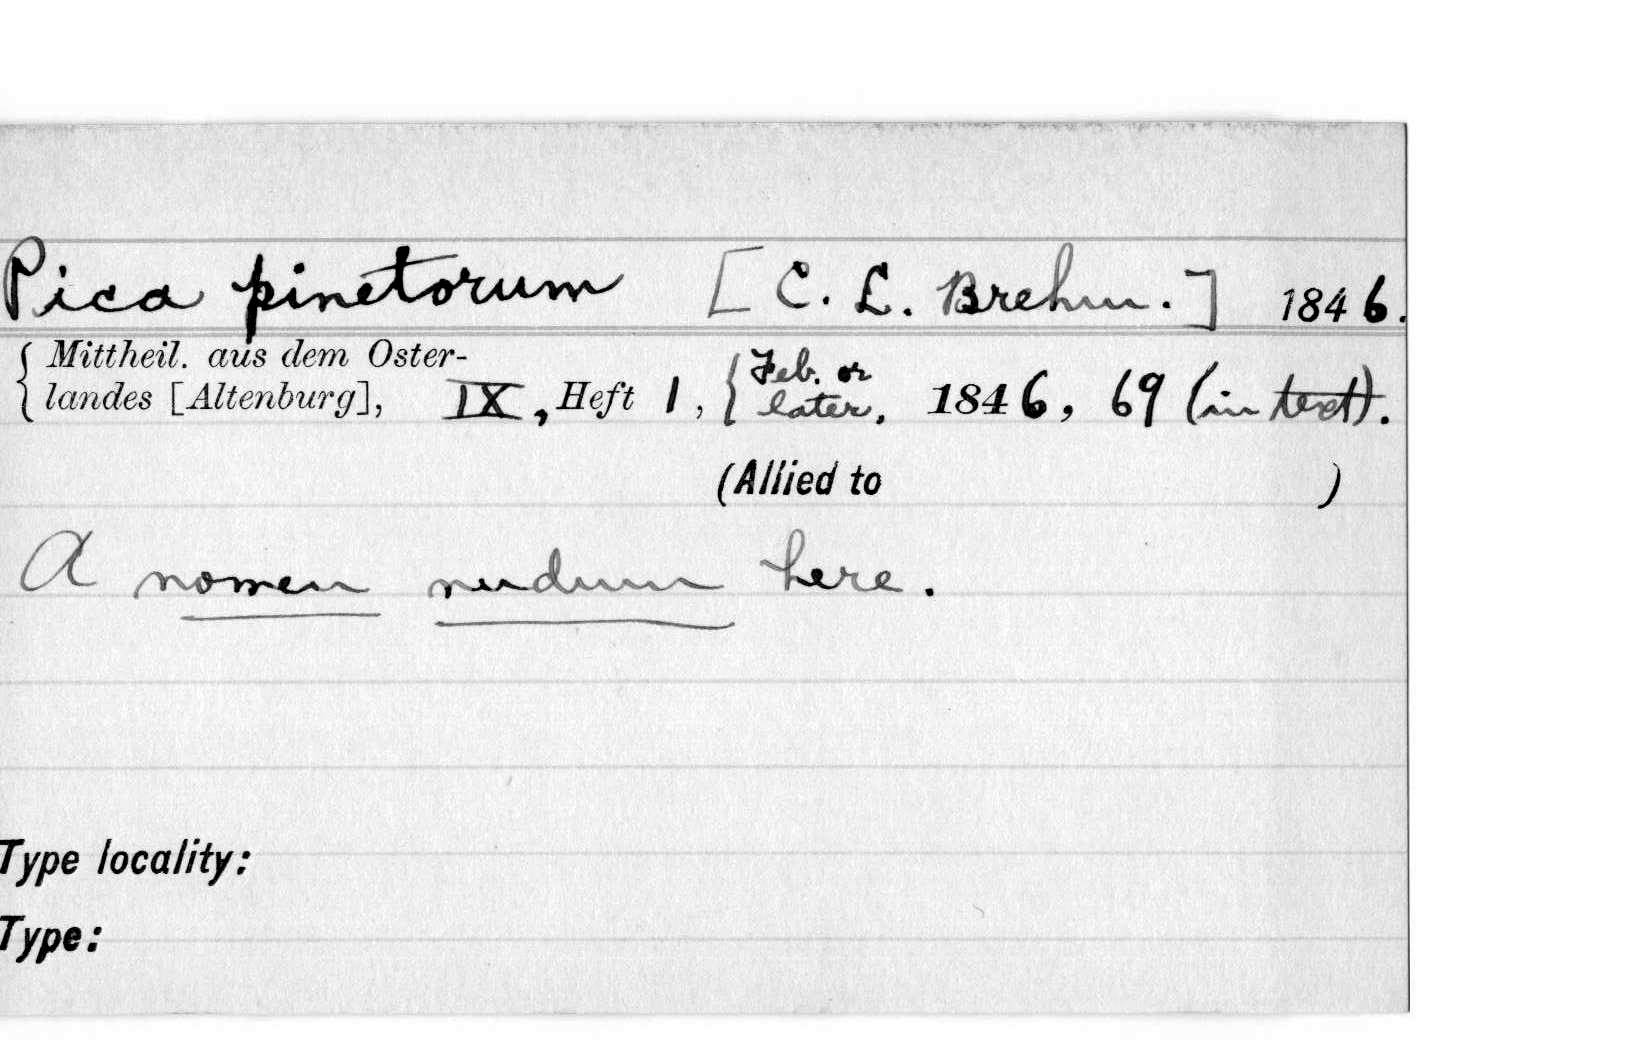 Pica pinetorum [C. L. Brehm.] 1846.
{ Mittheil. aus dem Oster-
landes [Altenburg], IX, Heft 1, { Feb. or later, 1846, 69 (in text).
(Allied to )
A nomen nudum here.
Type locality:
Type: